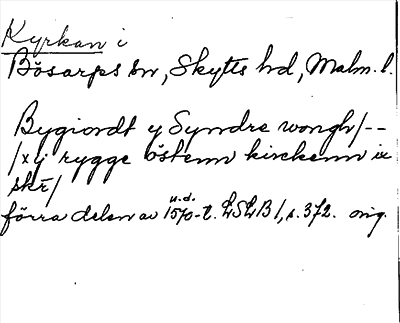 Kyrkan i
Bösarps sn, Skytts hd, Malm. l.
Bygiordt y Syndre wongh/--
/xij rygge östenn kirckenn ix
skr/
u.d.
förra delen av 1570-t. LSLB 1, s. 372. orig.